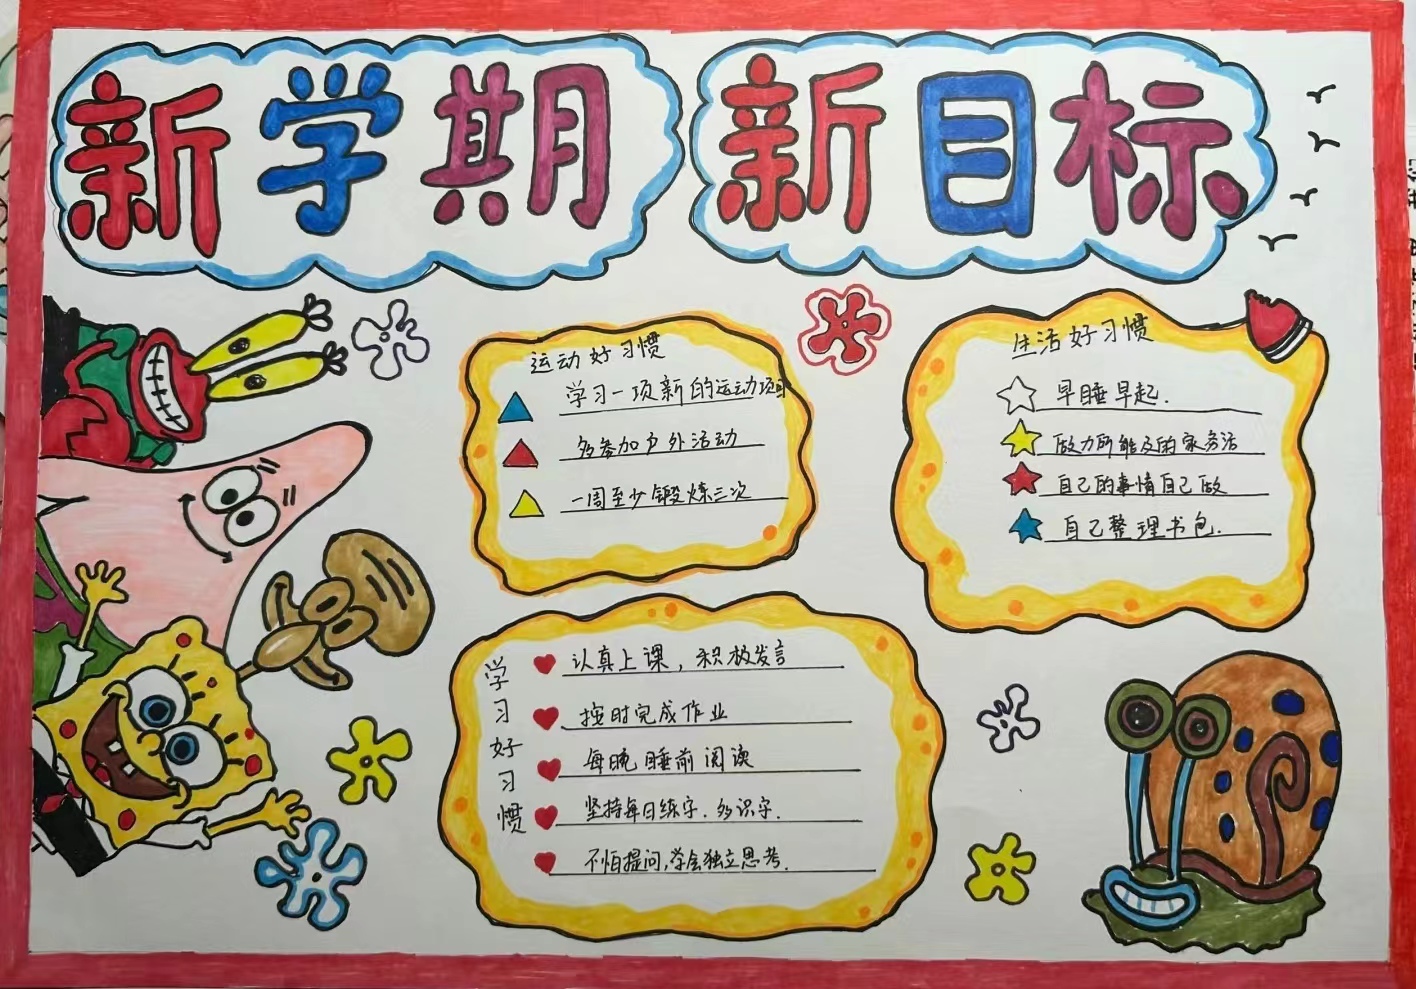 新学期 新目标
运动好习惯
学习一项新的运动项目
多参加户外活动
一周至少锻炼三次
生活好习惯
早睡早起.
做力所能及的家务活
自己的事情自己做
自己整理书包.
学习好习惯
认真上课，积极发言
按时完成作业
每晚睡前阅读
坚持每日练字.多识字.
不怕提问,学会独立思考.